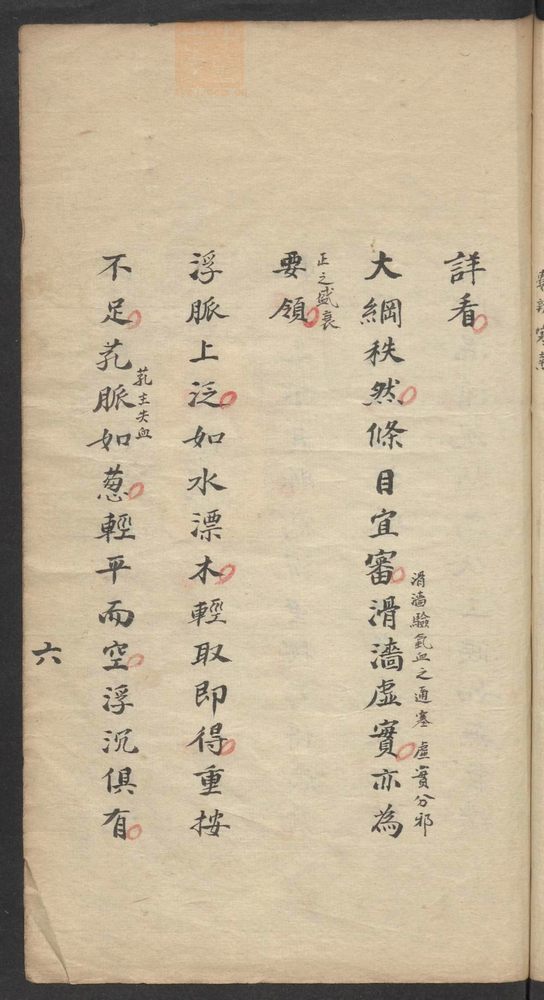 詳看
大綱秩然條目宜審滑濇虛實亦為
滑濇驗氣血之通塞 虛實分邪
要領
正之盛衰
浮脈上泛如水漂木輕取即得重按
不足芤脈如葱輕平而空浮沉俱有
芤主失血
六